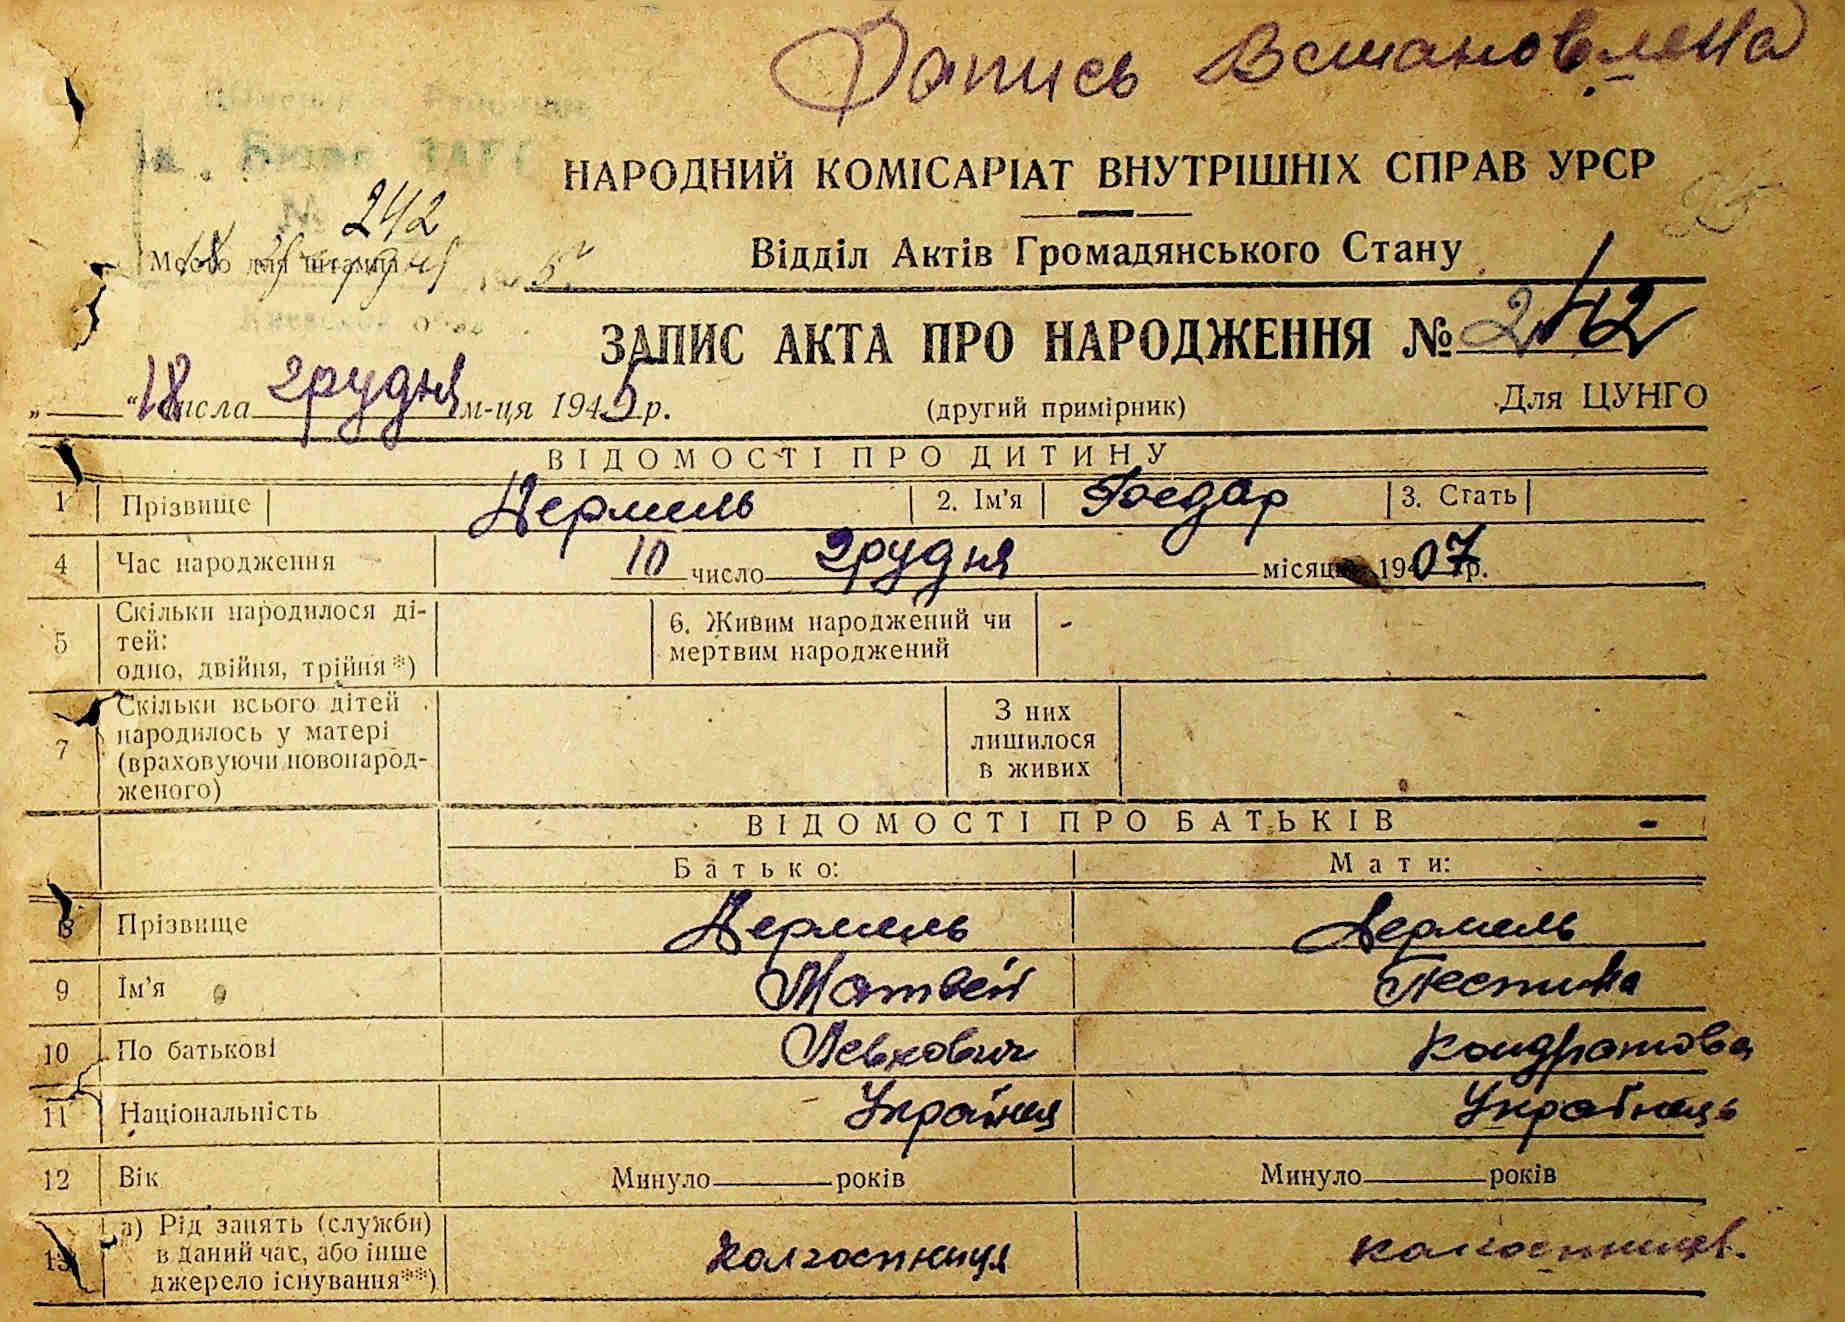 Запись Встановлена
Бюро ЗАГС
№ 242
НАРОДНИЙ КОМІСАРІАТ ВНУТРІШНІХ СПРАВ УРСР
Місто для штампу
18 грудня 5
Відділ Актів Громадянського Стану
ЗАПИС АКТА ПРО НАРОДЖЕННЯ № 242
„ “ 18 числа грудня м-ця 1945 р.
(другий примірник)
Для ЦУНГО
ВІДОМОСТІ ПРО ДИТИНУ
1 Прізвище Дермель 2. Ім'я 3. Стать
4 Час народження 10 число грудня місяця 1907 р.
5 Скільки народилося ді-
тей:
одно, двійня, трійня*)
6. Живим народжений чи
мертвим народжений -
7 Скільки всього дітей
народилось у матері
(враховуючи новонарод-
женого)
З них
лишилося
в живих
ВІДОМОСТІ ПРО БАТЬКІВ
Батько: Мати:
8 Прізвище Дермель Дермель
9 Ім'я Матвей
10 По батькові Левкович Кондратова
11 Національність Українец Українець
12 Вік Минуло років Минуло років
13 а) Рід занять (служби)
в даний час, або інше
джерело існування**)
колгоспниця